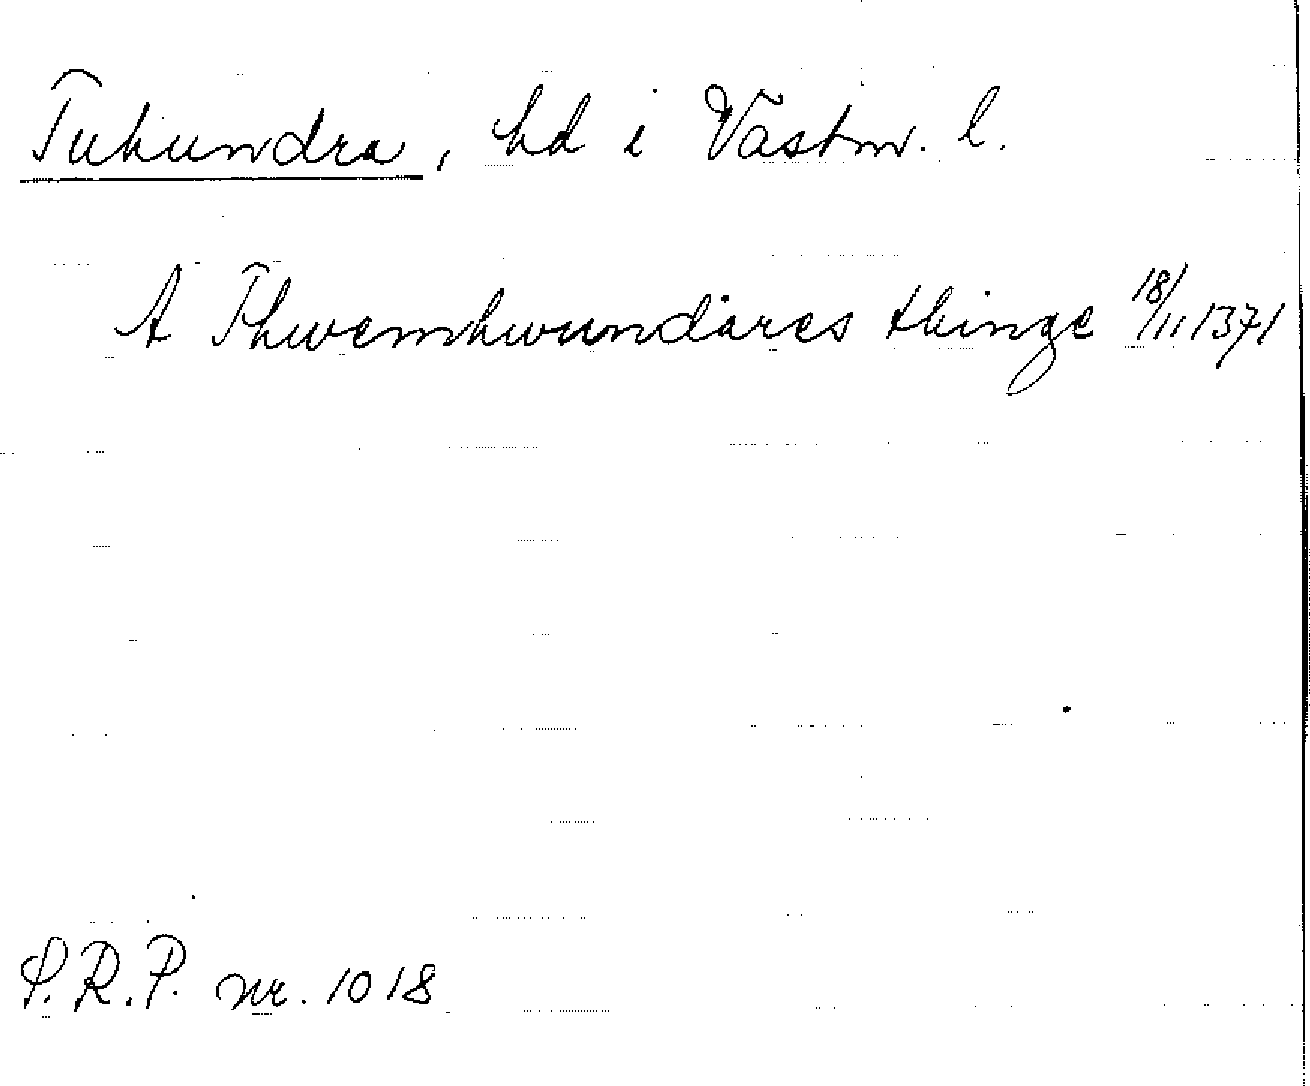 Tuhundra, hd i Västm. l.
A Thwemhwundäres thinge 18/11 1371
S.R.P. nr. 1018